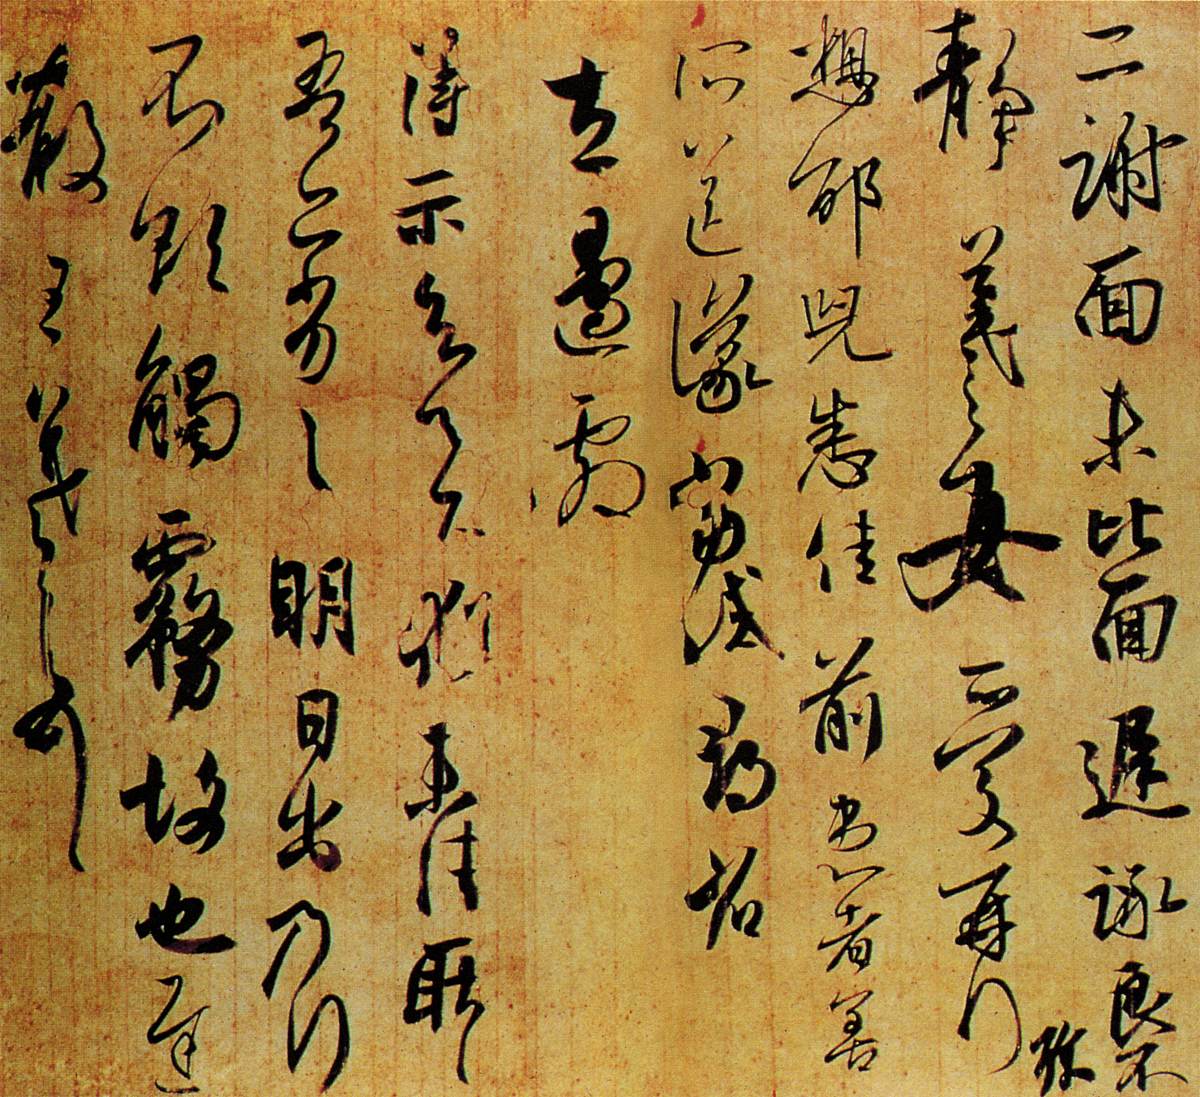 二謝面未比面遲詠良不
靜羲之女愛再拜
想邵兒悉佳前患者善
所送議當試尋省
左邊劇
得示知足下猶未佳耿耿
吾亦劣劣明日出乃行
不欲觸霧故也遲
散王羲之頓首